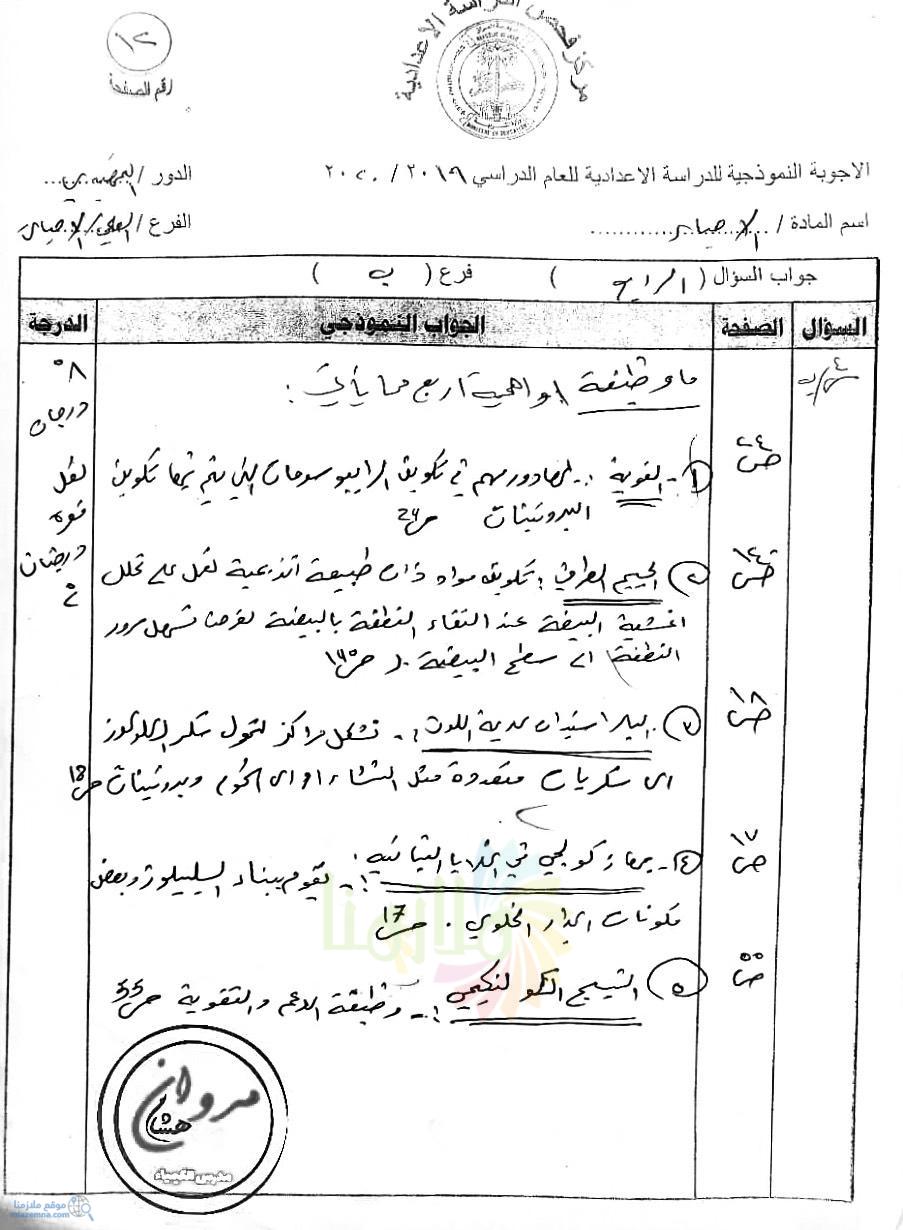 ١٢
رقم الصفحة
مركز فحص الدراسة الاعدادية
الاجوبة النموذجية للدراسة الاعدادية للعام الدراسي ٢٠١٩ / ٢٠٢٠
الدور / التمهيدي
اسم المادة / الاحياء
الفرع / العلمي / الاحيائي
جواب السؤال ( الرابع ) فرع ( ب )
السؤال الصفحة الجواب النموذجي الدرجة
س٤/ب
ما وظيفة او اهمية اربع مما يأتي :
٨
درجات
لكل
درجتان
ص٢٤
١- النوية :- لها دور مهم في تكوين الرايبوسومات التي يتم فيها تكوين
البروتينات ص24
٢ الجسيم الطرفي : تكوين مواد ذات طبيعة انزيمية تعمل على تحلل
اغشية البيضة عند التقاء النطفة بالبيضة لغرض تسهيل مرور
النطفة الى سطح البيضة
ص١٨
٣ البلاستيدات عديمة اللون :- تشكل مراكز لتحول سكر الكلوكوز
الى سكريات متعددة مثل النشاء او الى شحوم وبروتينات ص18
ص١٧
٤- جهاز كولجي في الخلايا النباتية :- يقوم ببناء السليلوز وبعض
مكونات الجدار الخلوي . ص17
ص٥٥
٥ النسيج الكولنكيمي :- وظيفة الدعم والتقوية ص55
مروان
هشام
مدرس الكيمياء
ملازمنا
موقع ملازمنا
mlazemna.com